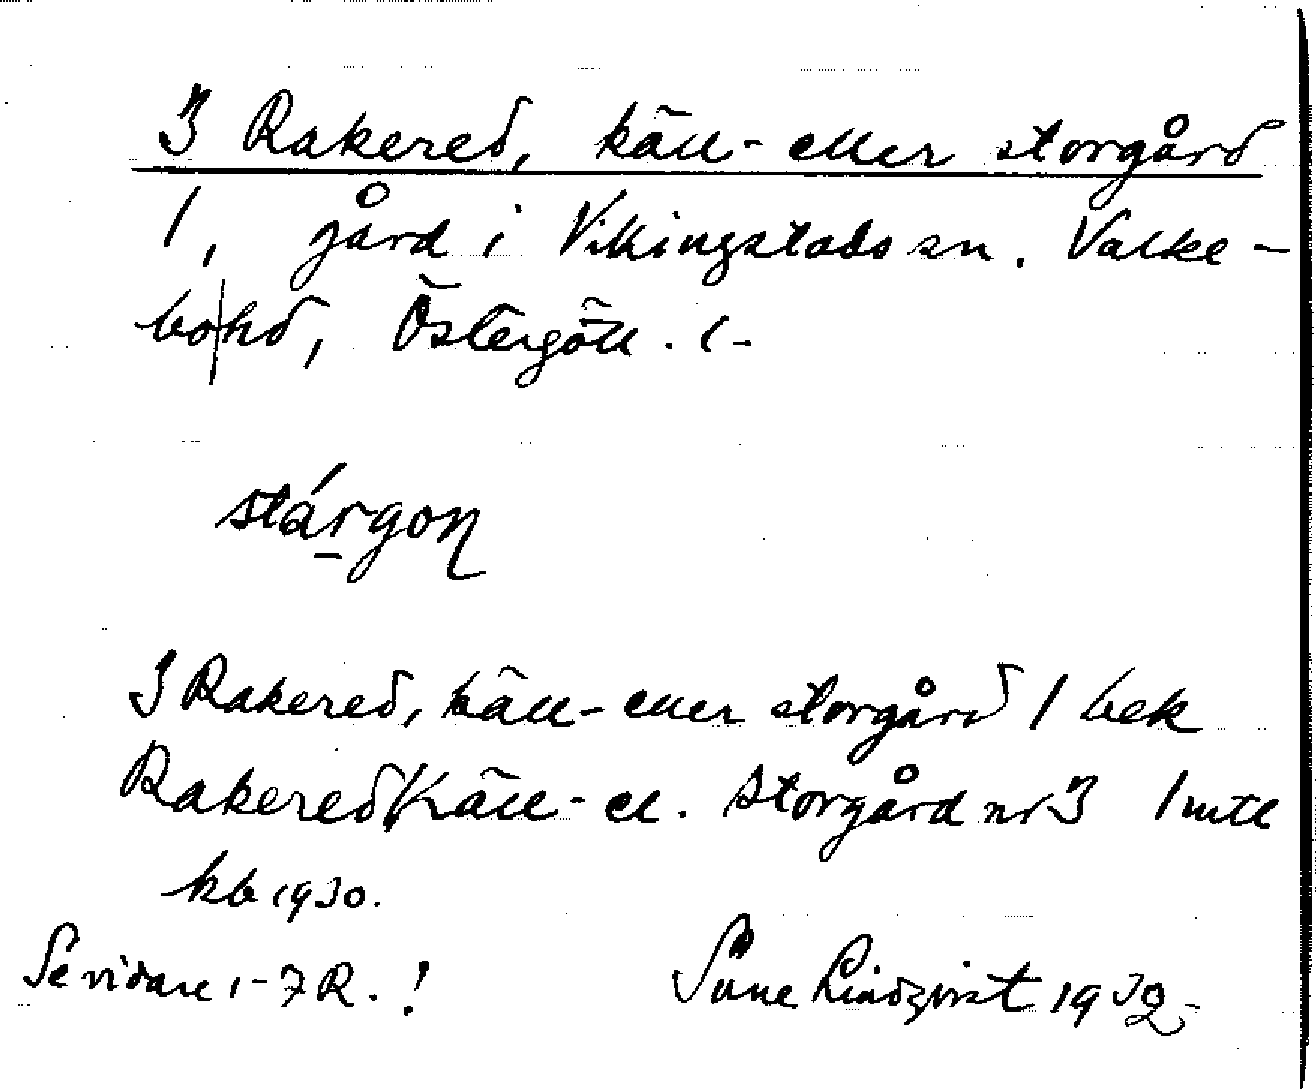 3 Rakered, käll- eller storgård
1, gård i Vikingstads sn. Valke-
bo hd, Östergötl. l-
stárgon
3 Rakered, käll- eller storgård 1 bek
Rakered Käll- el. Storgård nr 3 1 mtl
kb 1930.
Se vidare 1-7 R. !
Sune Lindqvist 1932